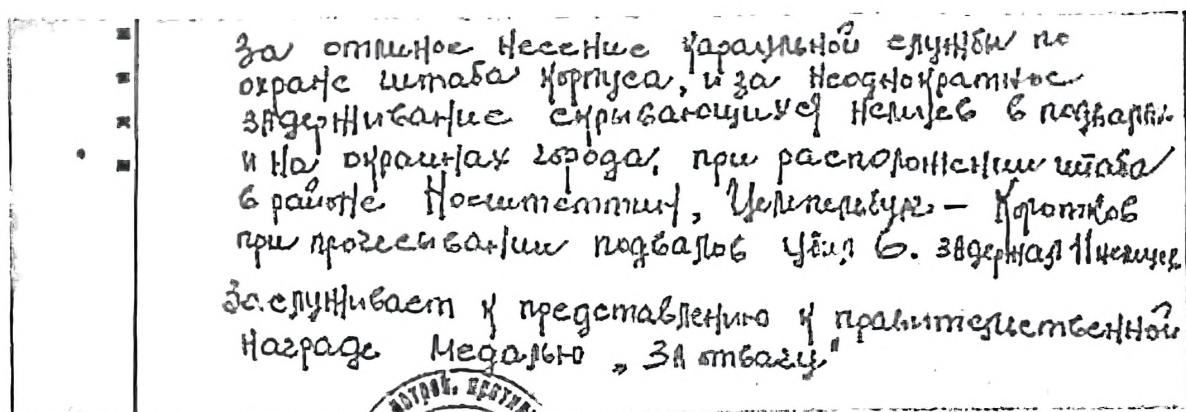 За отличное несение караульной службы по
охране штаба корпуса, и за неоднократное
задерживание скрывающихся немцев в подвалах
и на окраинах города, при расположении штаба
в районе – Коротков
при прочесывании подвалов убил 6. задержал 11 немцев
Заслуживает к представлению к правительственной
награде Медалью „За отвагу"